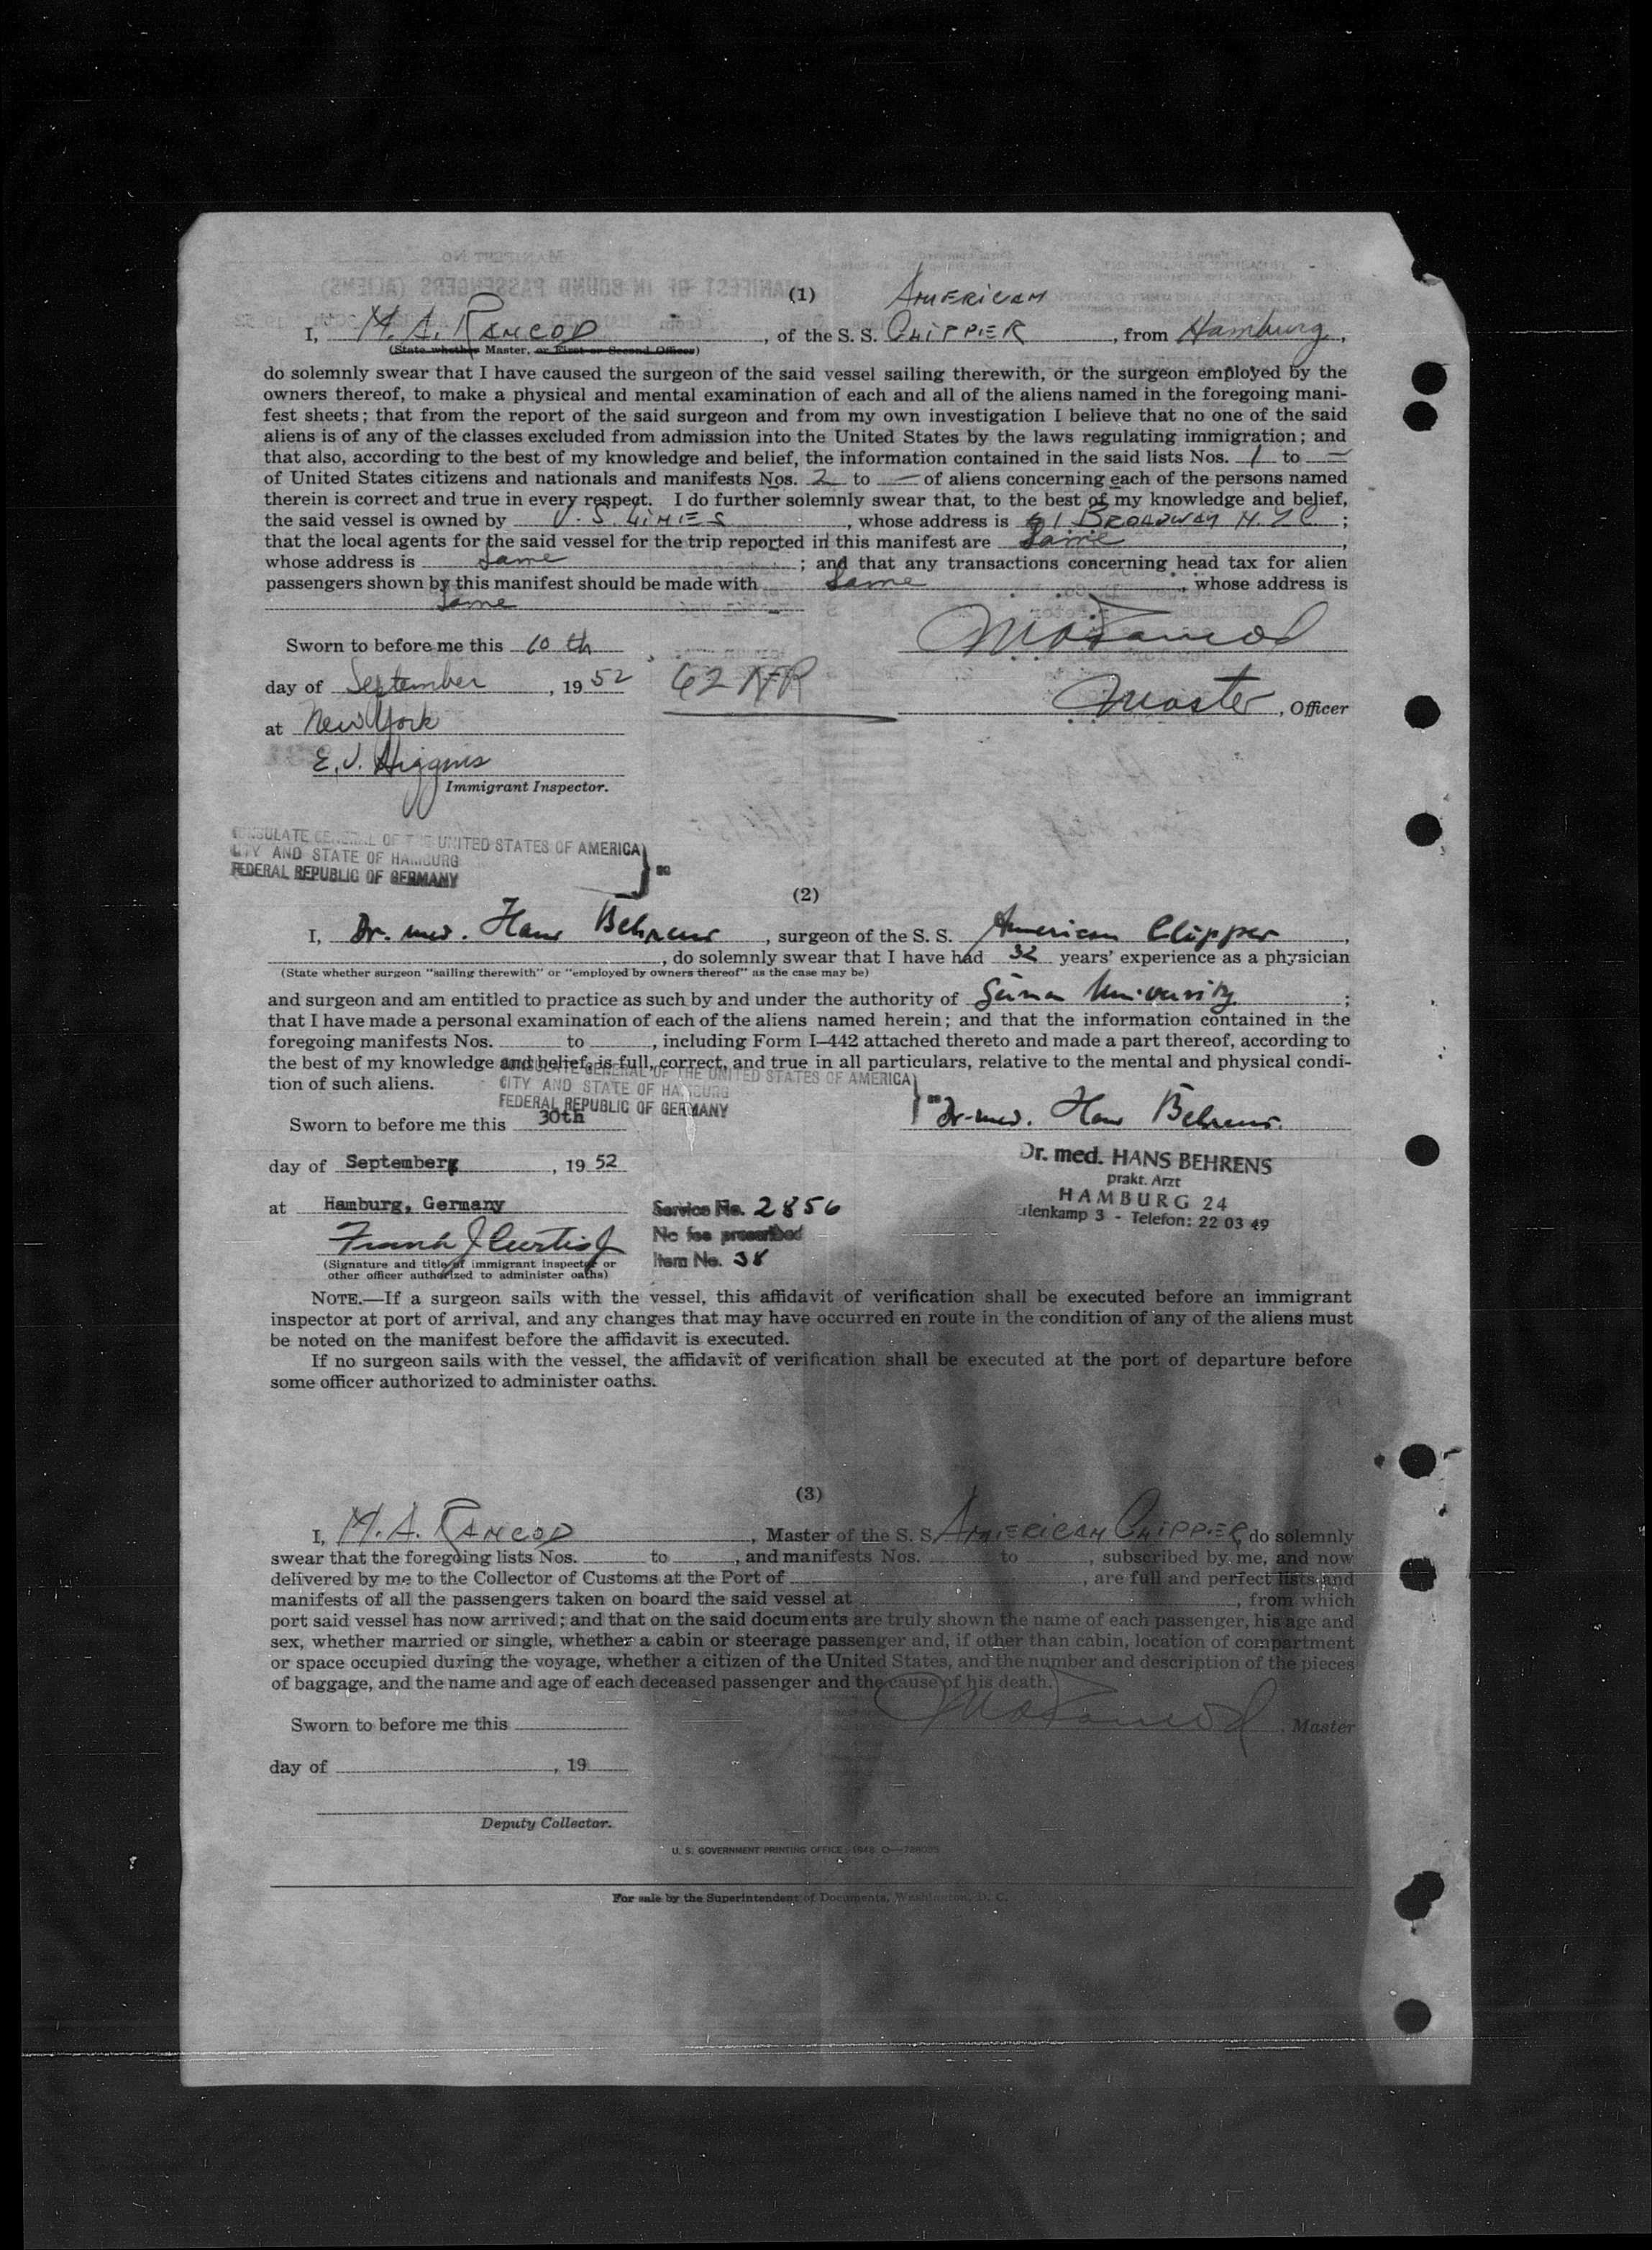 (1)
I, M. A. RANCOD, of the S. S. AMERICAN CLIPPER, from Hamburg,
(State whether Master, or First or Second Officer)
do solemnly swear that I have caused the surgeon of the said vessel sailing therewith, or the surgeon employed by the
owners thereof, to make a physical and mental examination of each and all of the aliens named in the foregoing mani-
fest sheets; that from the report of the said surgeon and from my own investigation I believe that no one of the said
aliens is of any of the classes excluded from admission into the United States by the laws regulating immigration; and
that also, according to the best of my knowledge and belief, the information contained in the said lists Nos. 1 to —
of United States citizens and nationals and manifests Nos. 2 to — of aliens concerning each of the persons named
therein is correct and true in every respect. I do further solemnly swear that, to the best of my knowledge and belief,
the said vessel is owned by U. S. LINES, whose address is BROADWAY N.Y.C;
that the local agents for the said vessel for the trip reported in this manifest are Same,
whose address is Same; and that any transactions concerning head tax for alien
passengers shown by this manifest should be made with Same, whose address is
Same
Sworn to before me this 10 th
day of September, 19 52 62 NR
Master, Officer
at New York
E. J. Higgins
Immigrant Inspector.
CONSULATE GENERAL OF THE UNITED STATES OF AMERICA
CITY AND STATE OF HAMBURG
FEDERAL REPUBLIC OF GERMANY } SS
(2)
I, Dr. med. Hans Behrens, surgeon of the S. S. American Clipper,
, do solemnly swear that I have had 32 years' experience as a physician
(State whether surgeon "sailing therewith" or "employed by owners thereof" as the case may be)
and surgeon and am entitled to practice as such by and under the authority of University;
that I have made a personal examination of each of the aliens named herein; and that the information contained in the
foregoing manifests Nos. to , including Form I–442 attached thereto and made a part thereof, according to
the best of my knowledge and belief, is full, correct, and true in all particulars, relative to the mental and physical condi-
tion of such aliens.
CONSULATE GENERAL OF THE UNITED STATES OF AMERICA
CITY AND STATE OF HAMBURG
FEDERAL REPUBLIC OF GERMANY } SS
Dr. med. Hans Behrens.
Sworn to before me this 30th
Dr. med. HANS BEHRENS
day of September, 19 52
prakt. Arzt
HAMBURG 24
lenkamp 3 - Telefon: 22 03 49
at Hamburg, Germany
Service No. 2856
No fee prescribed
Item No. 38
Frank J Curtis Jr
(Signature and title of immigrant inspector or
other officer authorized to administer oaths)
NOTE.—If a surgeon sails with the vessel, this affidavit of verification shall be executed before an immigrant
inspector at port of arrival, and any changes that may have occurred en route in the condition of any of the aliens must
be noted on the manifest before the affidavit is executed.
If no surgeon sails with the vessel, the affidavit of verification shall be executed at the port of departure before
some officer authorized to administer oaths.
(3)
I, M. A. RANCOD, Master of the S. S. AMERICAN CLIPPER, do solemnly
swear that the foregoing lists Nos. to , and manifests Nos. to , subscribed by me, and now
delivered by me to the Collector of Customs at the Port of , are full and perfect lists and
manifests of all the passengers taken on board the said vessel at , from which
port said vessel has now arrived; and that on the said documents are truly shown the name of each passenger, his age and
sex, whether married or single, whether a cabin or steerage passenger and, if other than cabin, location of compartment
or space occupied during the voyage, whether a citizen of the United States, and the number and description of the pieces
of baggage, and the name and age of each deceased passenger and the cause of his death.
Sworn to before me this
, Master
day of , 19
Deputy Collector.
U. S. GOVERNMENT PRINTING OFFICE 1948 O—
For sale by the Superintendent of Documents, Washington, D. C.